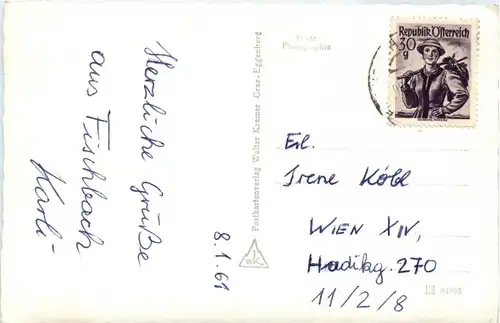 Herzliche Grüße
aus Fischbach
Karli
8.1.61
Postkartenverlag Walter Kramer Graz-Eggenberg
WK
Echte
Photographie
Republik Österreich
30
g
Frl.
Irene Köbl
WIEN XIV,
Hadikg. 270
11/2/8